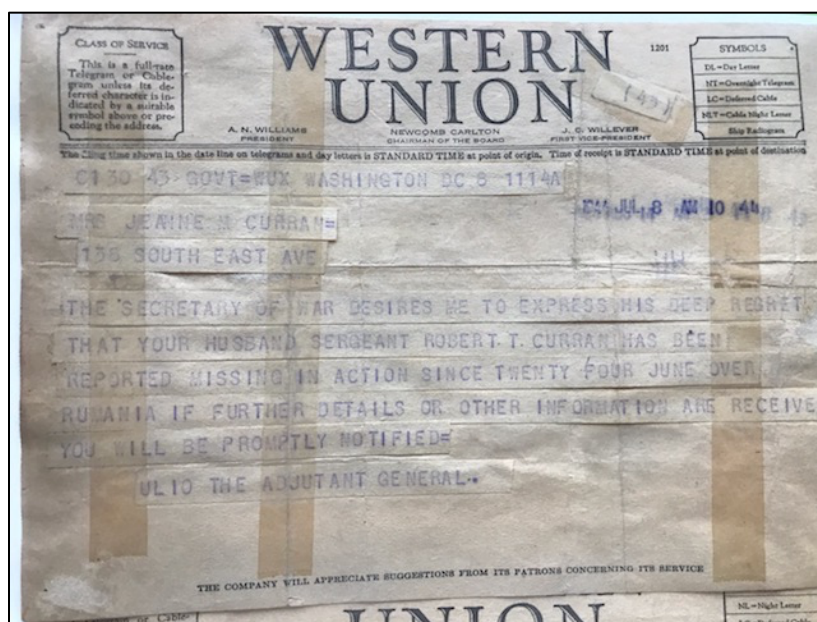 CLASS OF SERVICE
This is a full-rate
Telegram or Cable-
gram unless its de-
ferred character is in-
dicated by a suitable
symbol above or pre-
ceding the address.
WESTERN
UNION
1201
(43)
SYMBOLS
DL=Day Letter
NT=Overnight Telegram
LC=Deferred Cable
NLT=Cable Night Letter
Ship Radiogram
A. N. WILLIAMS
PRESIDENT
NEWCOMB CARLTON
CHAIRMAN OF THE BOARD
J. C. WILLEVER
FIRST VICE-PRESIDENT
The filing time shown in the date line on telegrams and day letters is STANDARD TIME at point of origin. Time of receipt is STANDARD TIME at point of destination
C130 43 GOVT=WUX WASHINGTON DC 8 1114A
1944 JUL 8 AM 10 44
MRS JEAINE M CURRAN=
136 SOUTH EAST AVE
THE SECRETARY OF WAR DESIRES ME TO EXPRESS HIS DEEP REGRET
THAT YOUR HUSBAND SERGEANT ROBERT T. CURRAN HAS BEEN
REPORTED MISSING IN ACTION SINCE TWENTY FOUR JUNE OVER
RUMANIA IF FURTHER DETAILS OR OTHER INFORMATION ARE RECEIVE
YOU WILL BE PROMPTLY NOTIFIED=
ULIO THE ADJUTANT GENERAL.
THE COMPANY WILL APPRECIATE SUGGESTIONS FROM ITS PATRONS CONCERNING ITS SERVICE
UNION
NL=Night Letter